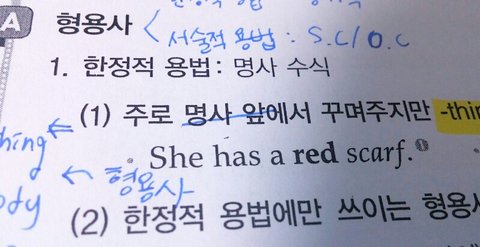 A 형용사 서술적 용법 : S.C / O.C
1. 한정적 용법 : 명사 수식
(1) 주로 명사 앞에서 꾸며주지만 -thin
hing ←
She has a red scarf.
← 형용사
ody
(2) 한정적 용법에만 쓰이는 형용사